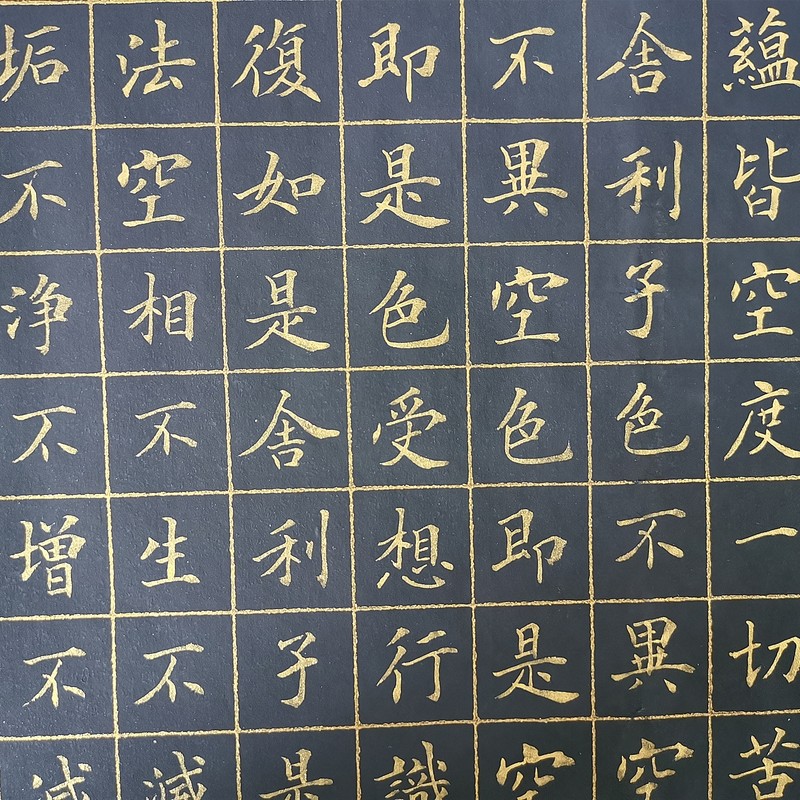 蘊皆空度一切苦
舎利子色不異空
不異空色即是空
即是色受想行識
復如是舎利子是
法空相不生不滅
垢不浄不増不減